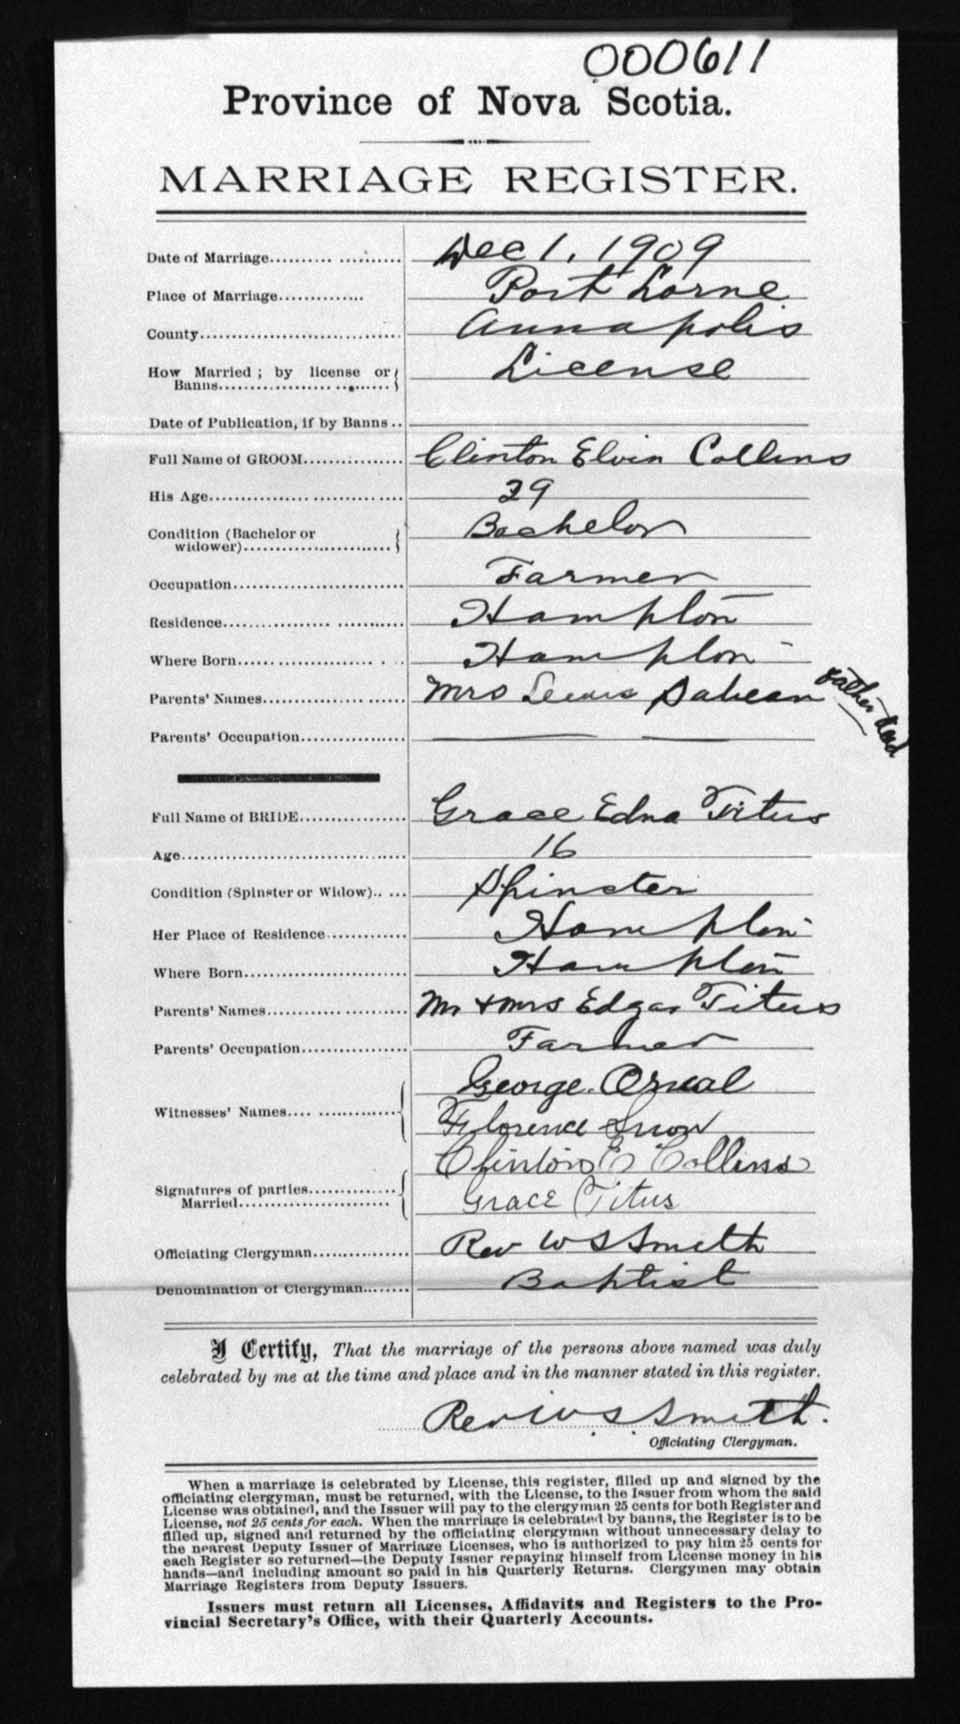 000611
Province of Nova Scotia.
MARRIAGE REGISTER.
Date of Marriage.......... Dec 1, 1909
Place of Marriage.............. Port Lorne
County................................ Annapolis
How Married ; by license or
Banns........................ License
Date of Publication, if by Banns ..
Full Name of GROOM................ Clinton Elvin Collins
His Age................................ 29
Condition (Bachelor or
widower)........................ Bachelor
Occupation........................... Farmer
Residence............................. Hampton
Where Born........................ Hampton
Parents' Names..................... Mrs Lewis Sabean Father dead
Parents' Occupation.................
Full Name of BRIDE................. Grace Edna Titus
Age..................................... 16
Condition (Spinster or Widow).. ... Spinster
Her Place of Residence............. Hampton
Where Born.......................... Hampton
Parents' Names..................... Mr & Mrs Edgar Titus
Parents' Occupation................. Farmer
George
Witnesses' Names.... .............
Florence Snow
Clinton E Collins
Signatures of parties..............
Married........................ Grace Titus
Officiating Clergyman............... Rev W S Smith
Denomination of Clergyman........ Baptist
I Certify, That the marriage of the persons above named was duly
celebrated by me at the time and place and in the manner stated in this register.
Rev W. S. Smith.
Officiating Clergyman.
When a marriage is celebrated by License, this register, filled up and signed by the
officiating clergyman, must be returned, with the License, to the Issuer from whom the said
License was obtained, and the Issuer will pay to the clergyman 25 cents for both Register and
License, not 25 cents for each. When the marriage is celebrated by banns, the Register is to be
filled up, signed and returned by the officiating clergyman without unnecessary delay to
the nearest Deputy Issuer of Marriage Licenses, who is authorized to pay him 25 cents for
each Register so returned—the Deputy Issuer repaying himself from License money in his
hands—and including amount so paid in his Quarterly Returns. Clergymen may obtain
Marriage Registers from Deputy Issuers.
Issuers must return all Licenses, Affidavits and Registers to the Pro-
vincial Secretary's Office, with their Quarterly Accounts.